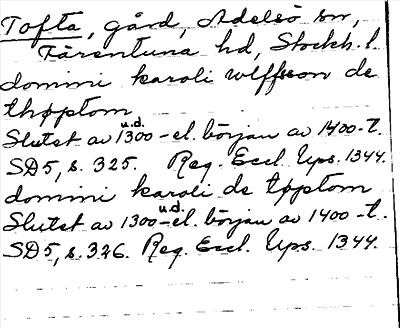 Tofta, gård, Adelsö sn,
Färentuna hd, Stockh. l.
domini karoli wlffsson de
thoptom
u.d.
Slutet av 1300- el. början av 1400-t.
SD5, s. 325. Reg. Eccl. Ups. 1344.
domini karoli de toptom
u.d.
Slutet av 1300- el. början av 1400-t.
SD5, s. 326. Reg. Eccl. Ups. 1344.